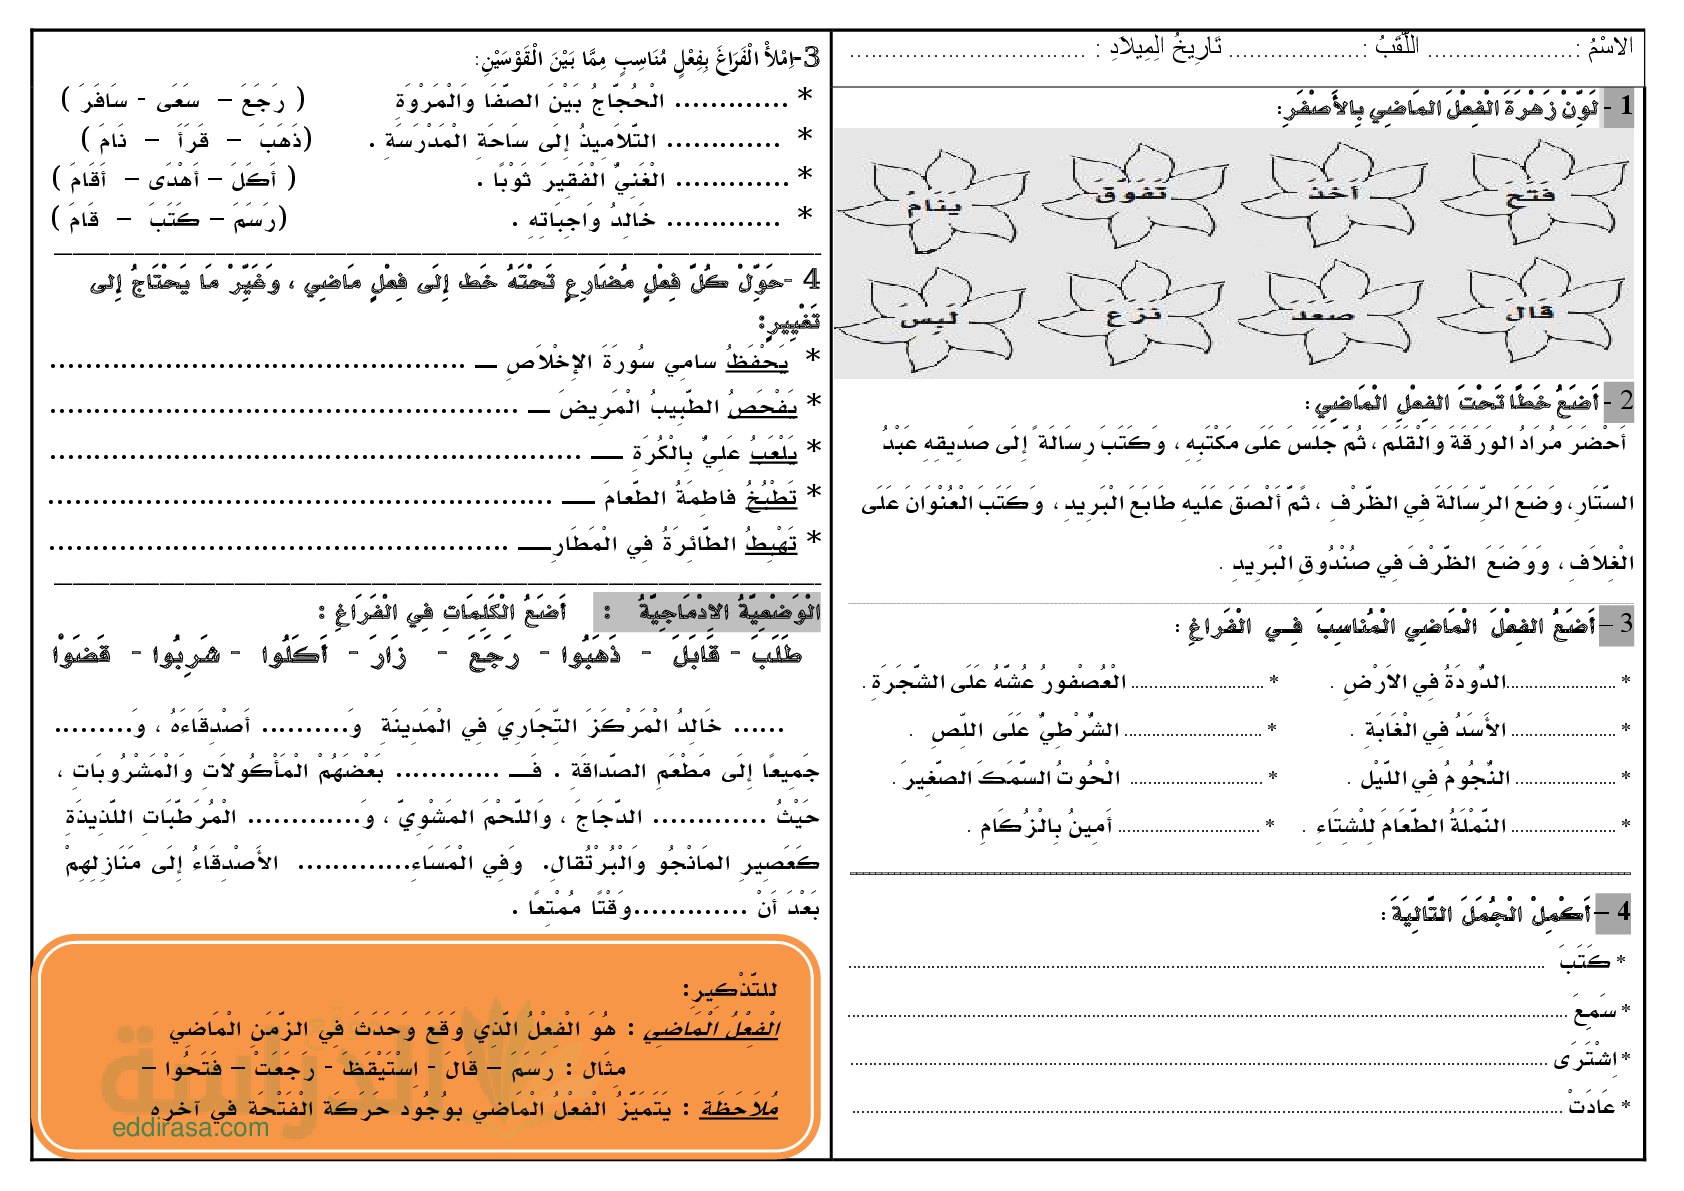 الاسْمُ :..................... اللَّقَبُ :................... تَارِيخُ الِمِيلاَدِ : ..................................
1 - لَوِّنْ زَهْرَةَ الْفِعْلَ المَاضِي بِالأَصْفَرِ:
فَتَحَ أَخَذَ تَفَوَّقَ يَنَامُ
قَالَ صَعَدَ نَزَعَ لَبِسَ
2 - أَضَعُ خَطًّا تَحْتَ الفِعْلِ الْمَاضِي:
أَحْضَرَ مُرَادُ الوَرَقَةَ وَالْقَلَمَ ، ثُمَّ جَلَسَ عَلَى مَكْتَبِهِ ، وَكَتَبَ رِسَالَةً إِلَى صَدِيقِهِ عَبْدُ
السّتَارِ، وَضَعَ الرِّسَالَةَ فِي الظّرْفِ ، ثُمَّ أَلْصَقَ عَلَيهِ طَابَعَ الْبَرِيدِ ، وَكَتَبَ الْعُنْوَانَ عَلَى
الْغِلاَفِ ، وَوَضَعَ الظّرْفَ فِي صُنْدُوقِ الْبَرِيدِ .
3 – أَضَعُ الفِعْلَ الْمَاضِي الْمُنَاسِبَ فِـي الْفَراغِ :
* ......................الدٌودَةُ فِي الاَرْضِ . * ......................... الْعُصْفورُ عُشّهُ عَلَى الشّجَرَةِ .
* ..................... الأَسَدُ فِي الْغَابَةِ . * .......................... الشّرْطِيٌ عَلَى اللّصِ .
* .................... النّجُومُ فِي اللّيْل . * ......................... الْحُوتُ السّمَكَ الصّغِيرَ .
* ..................... النّمْلَةُ الطّعَامَ لِلْشِتَاءِ . * ........................... أَمِينُ بِالْزُكَامِ .
4 – أَكْمِلْ الْجُمَلَ التَّالِيَةَ :
* كَتَبَ ..........................................................................
* سَمِعَ ..........................................................................
* اِشْتَرَى ..........................................................................
* عَادَتْ ..........................................................................
3-اِمْلأْ الْفَرَاغَ بِفِعْلٍ مُنَاسِبٍ مِمَّا بَيْنَ الْقَوْسَيْنِ:
* ............. الْحُجّاجُ بَيْنَ الصّفَا وَالْمَرْوَةِ ( رَجَعَ – سَعَى - سَافَرَ )
* ............. التّلاَمِيذُ إِلى سَاحَةِ الْمَدْرَسَةِ . (ذَهَبَ – قَرَأَ – نَامَ )
* ............. الْغَنِيٌ الْفَقِيرَ ثَوْبًا . ( أَكَلَ – أَهْدَى – أَقَامَ )
* ............. خَالِدُ وَاجِبَاتِهِ . (رَسَمَ – كَتَبَ – قَامَ )
4 -حَوِّلْ كُلَّ فِعْلٍ مُضَارِعٍ تَحْتَهُ خَط إِلَى فِعْلٍ مَاضِي ، وَغَيِّرْ مَا يَحْتَاجُ إِلى
تَغْيِيرٍ:
* يَحْفَظُ سامِي سُورَةَ الإِخْلاَصِ ـــ ...............................................
* يَفْحَصُ الطّبِيبُ الْمَرِيضَ ـــ ....................................................
* يَلْعَبُ عَلِيٌ بِالْكُرَةِ ـــــ ...........................................................
* تَطْبُخُ فاطِمَةُ الطّعامَ ـــــ ........................................................
* تَهْبِطُ الطّائِرَةُ فِي الْمَطَارِــــــ ...................................................
الْوَضْعِيَّةُ الاِدْمَاجِيَّةُ : أَضَعُ الْكَلِمَاتِ فِي الْفَرَاغِ :
طَلَبَ - قَابَلَ - ذَهَبُوا - رَجَعَ - زَارَ - أَكَلُوا - شَرِبُوا - قَضَوْا
...... خَالِدُ الْمَرْكَزَ التِّجَارِيَ فِي الْمَدِينَةِ وَ.......... أَصْدِقَاءَهُ ، وَ.........
جَمِيعًا إِلَى مَطْعَمِ الصّدَاقَةِ . فَـــ ............ بَعْضَهُمْ الْمَأْكُولاَتِ وَالْمَشْرُوبَاتِ ،
حَيْثُ ............. الدّجَاجَ ، وَاللّحْمَ المَشْوِيّ ، وَ............. الْمُرَطّبَاتِ اللّذِيذَةِ
كَعَصِيرِ المَانْجُو وَالْبُرْتُقالِ. وَفِي الْمَسَاءِ............. الأَصْدِقَاءُ إِلَى مَنَازِلِهِمْ
بَعْدَ أَنْ .............وَقْتًا مُمْتِعًا .
للتّذْكِيرِ:
الْفِعْلُ الْمَاضِي : هُوَ الْفِعْلُ الّذِي وَقَعَ وَحَدَثَ فِي الزّمَنِ الْمَاضِي
مِثَال : رَسَمَ – قَالَ - اِسْتَيْقَظَ - رَجَعَتْ – فَتَحُوا –
مُلاَحَظَة : يَتَمَيّزُ الْفِعْلُ الْمَاضِي بوُجُود حَرَكَة الْفَتْحَة في آخره
الدراسة
eddirasa.com